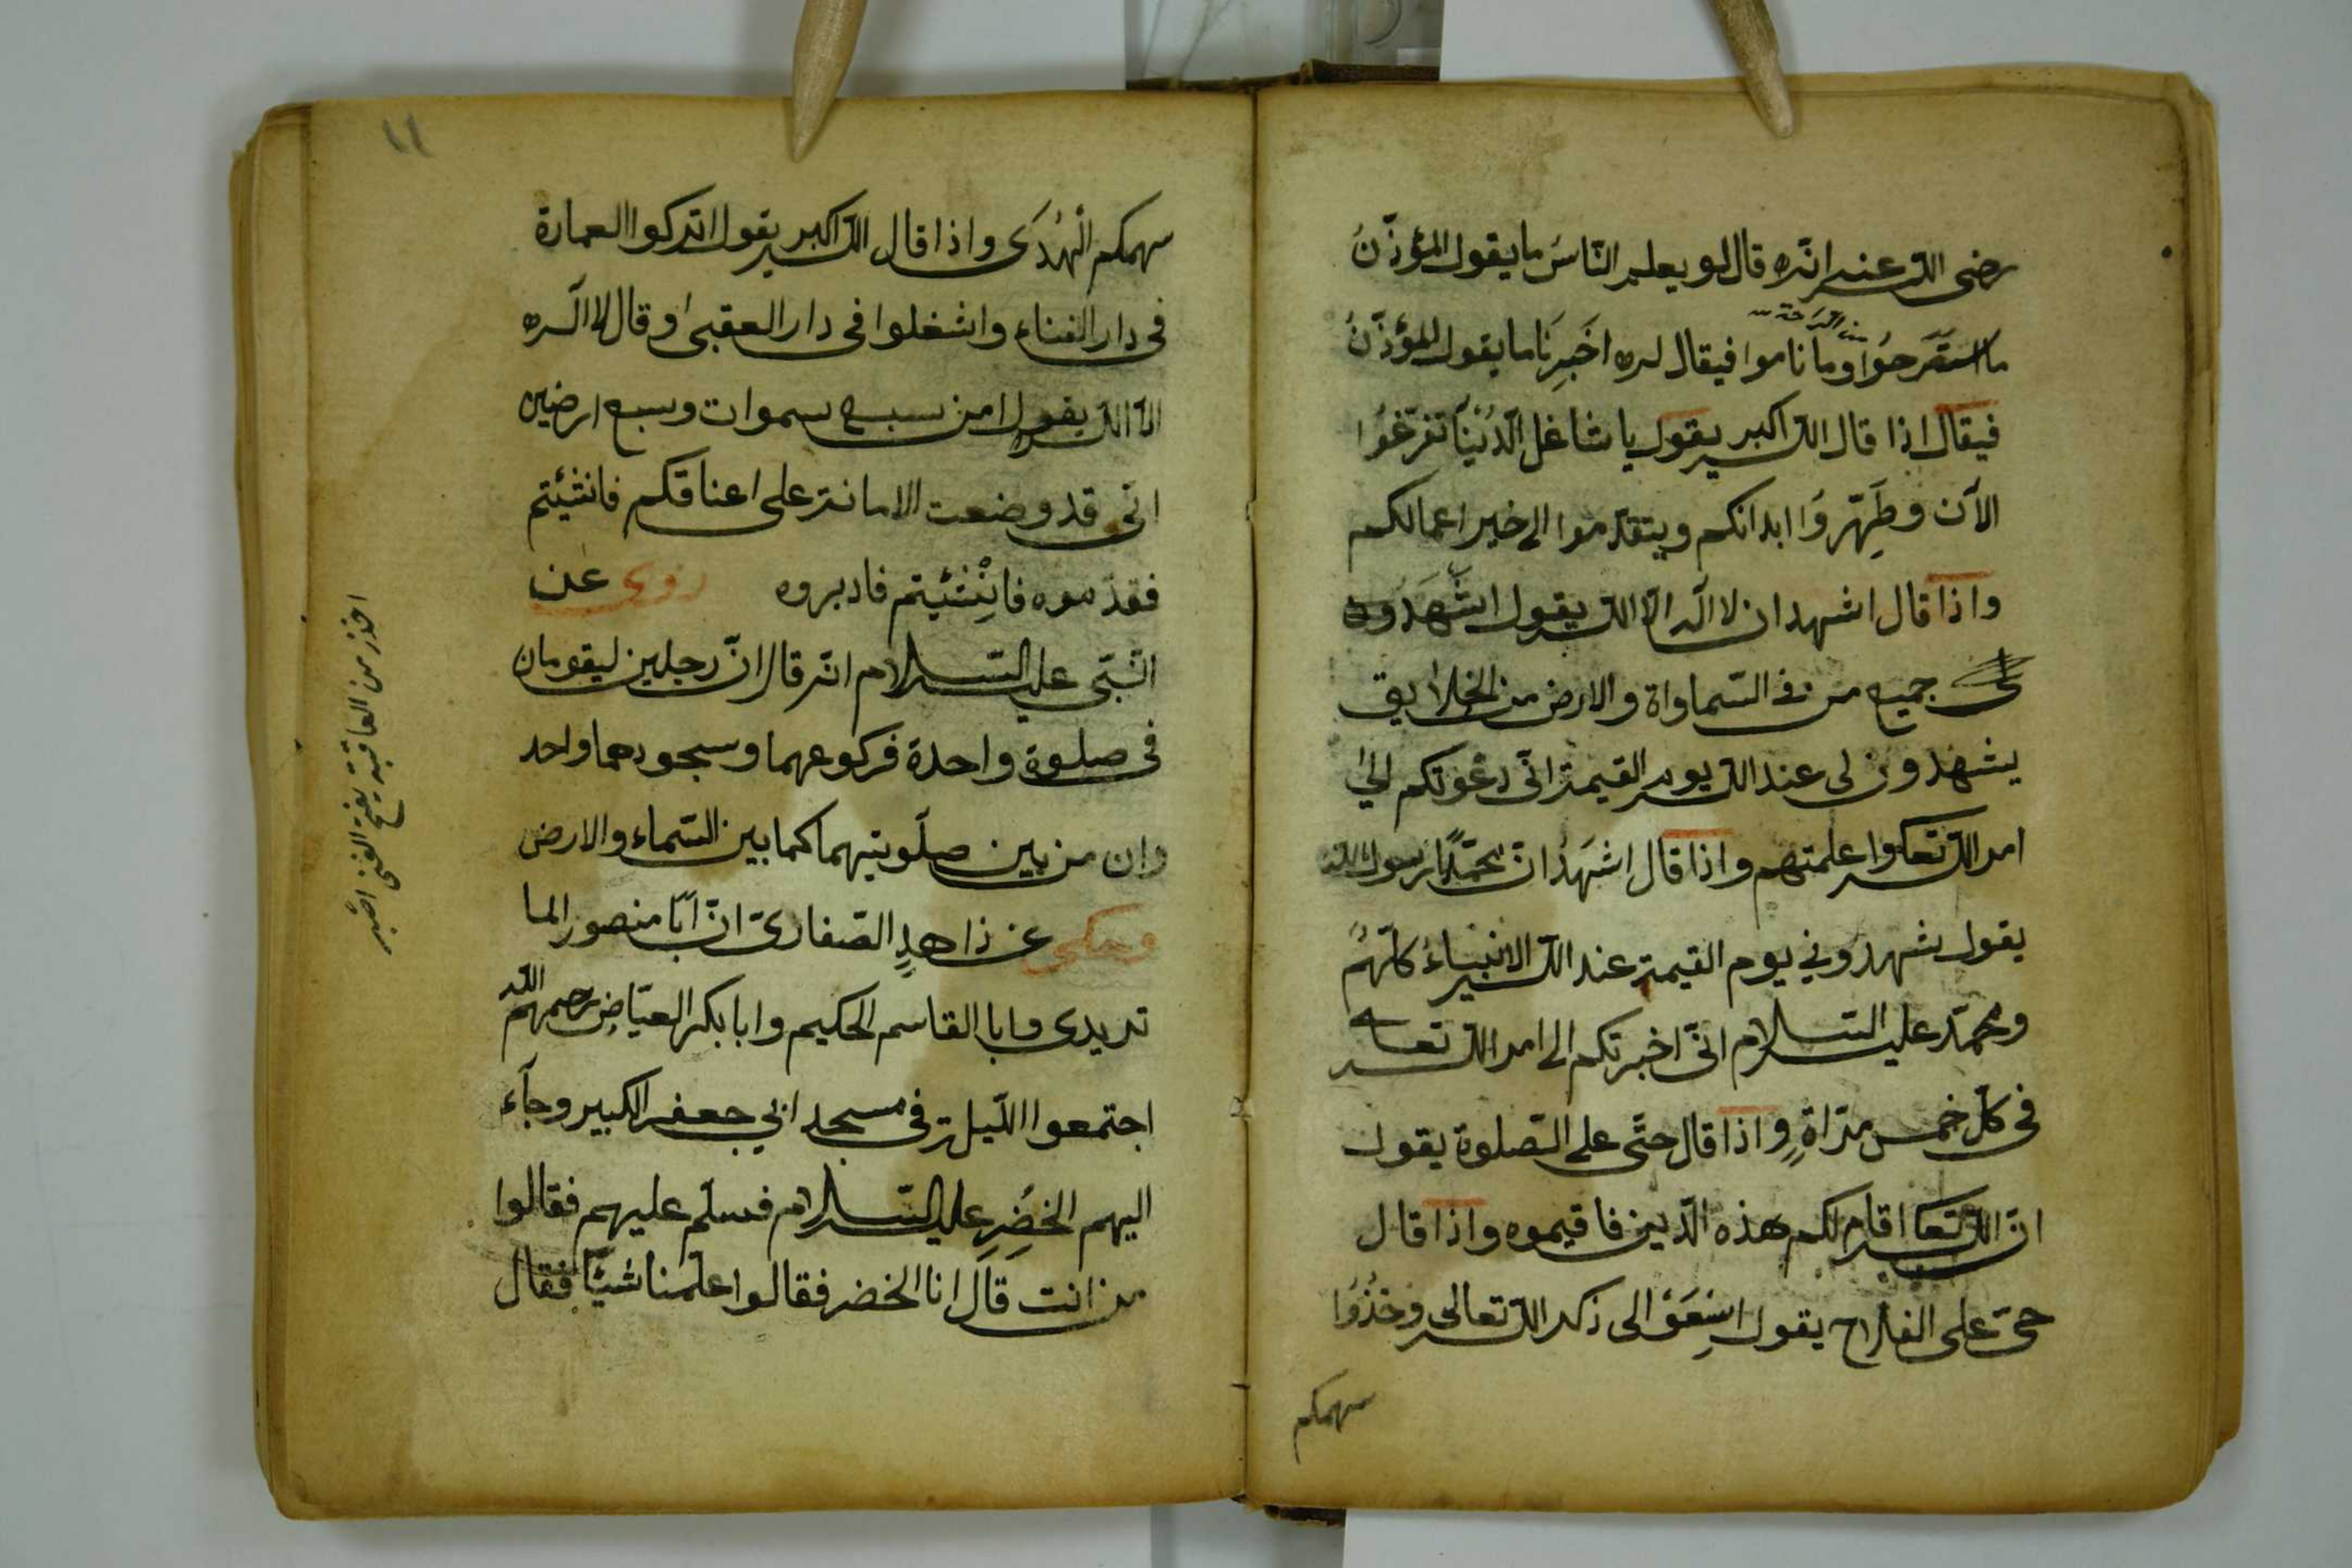 رضى الله عنه انّه قال لو يعلم النّاسُ ما يقول المؤذّنُ
ما استَرحُوا وما ناموا فيقال له اَخبِرنَا ما يقول المؤذّنُ
من الرّاحة
فيقال اذا قال الله اكبر يقول يا شاغل الدُنْيَا تفرّغُوا
الآن وطَهِّرُوا ابدانكم ويتقدّموا الى خير اعمالكم
واذا قال اشهد ان لا اله الّا الله يقول اشهَدُون
لى جميع من فى السّماواة والارض من الخلايق
يشهدون لى عند الله يوم القيمة انّى دعوتكم الى
امر الله تعا واعلمتهم واذا قال اشهَدُ انّ محمّدًا رسول الله
يقول يشهدونى يوم القيمة عند الله الانبياءُ كلّهُم
ومحمّد عليه السلام انّى اخبرتكم الى امر الله تعا
فى كلّ خمس مرّاةٍ واذا قال حىّ على الصّلوة يقول
انّ الله تعا اقام لكم هذه الدّين فاقيموه واذا قال
حىّ على الفلاح يقول اسِعَوْ الى ذكر الله تعالى وخُذُوا
سهمكم
١١
سهمكم الهُدَى واذا قال الله اكبر يقول اتركوا العمارة
فى دار الفناء واشغلوا فى دار العقبى او قال لا اله
الّا الله يقول امن سبع سموات وسبع ارضين
انّى قد وضعت الامانة على اعناقكم فانشئتم
فقدّموه فاِنْشئيتم فادبروه روى عن
النّبى عليه السلام انّه قال انّ رجلين ليقومان
فى صلوة واحدة فركوعهما وسجودهما واحد
وان من بين صلَوتيهما كما بين السّماء والارض
وحكى عن ذاهدٍ الصّفارىّ انّ ابَا منصور الما
تريدى وابا القاسم الحكيم وابا بكر العيّاضِ رحمهم الله
اجتمعوا الليلة فى مسجد ابى جعفر الكبير وجآء
اليهم الخضِر عليه السلام فسلّم عليهم فقالوا
من انت قال انا الخضر فقالوا علّمنا شيئًا فقال
اخذ من العاقبة يفتح الغنى